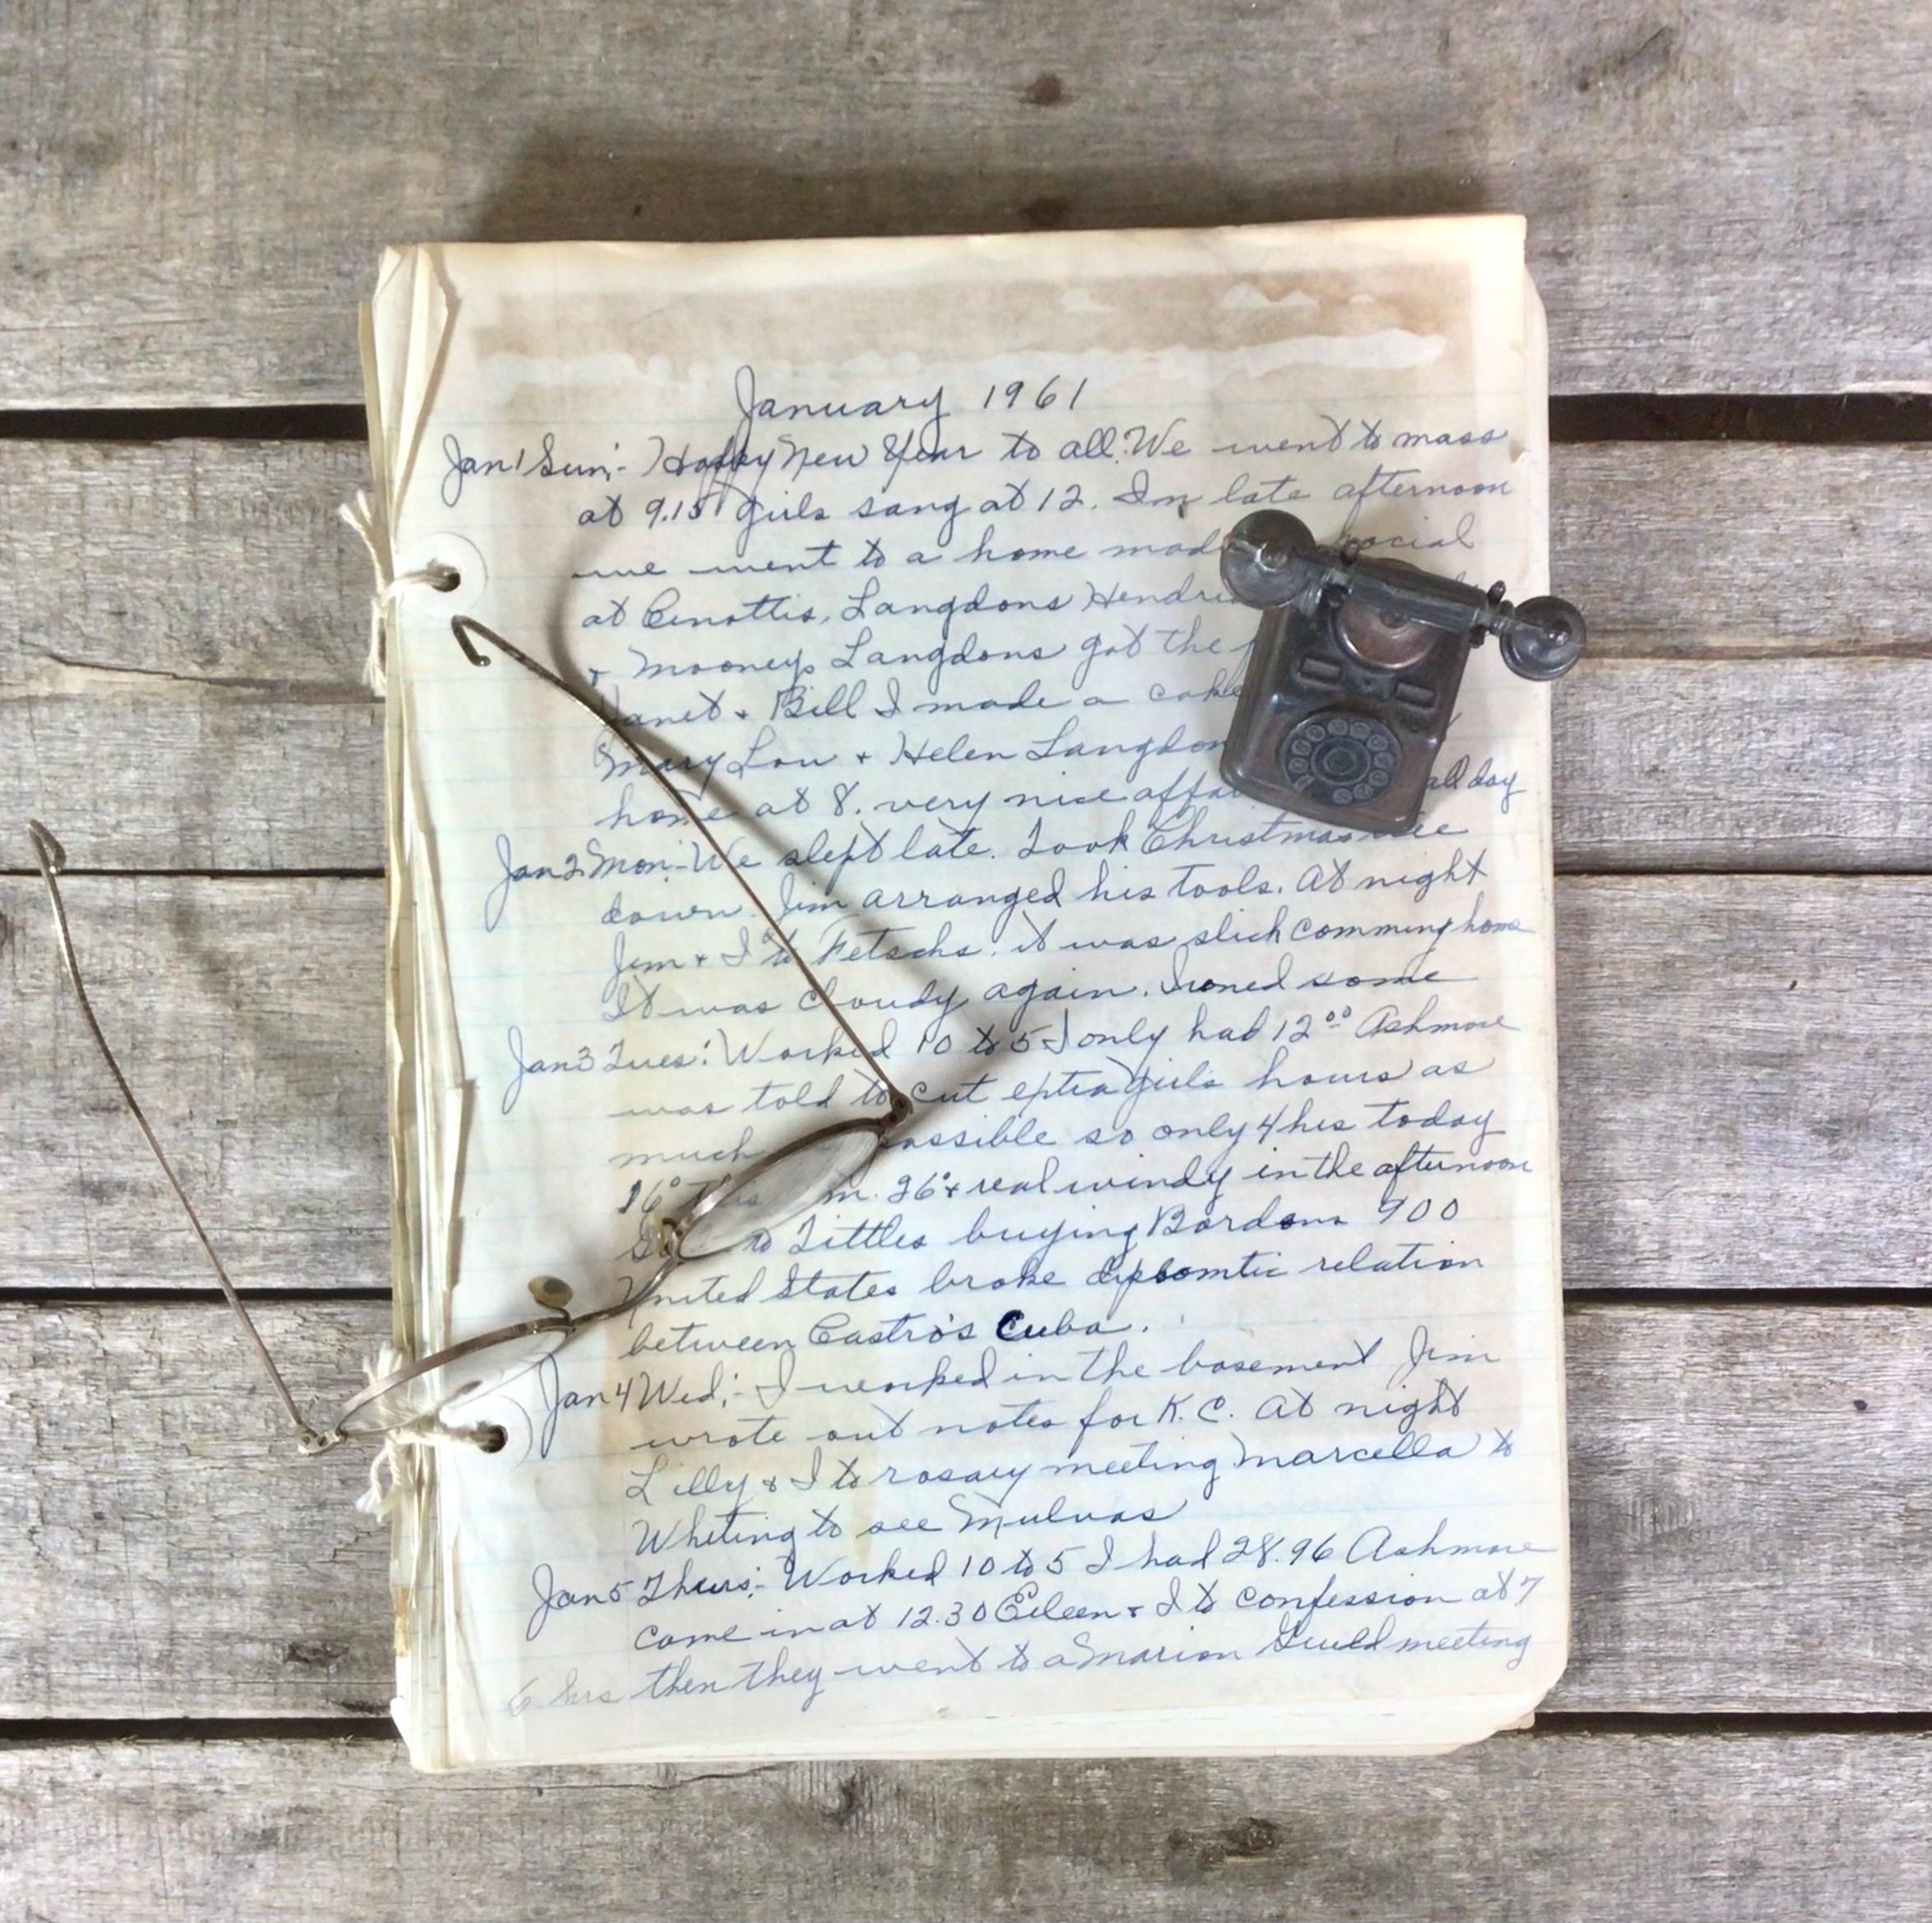 January 1961
Jan 1 Sun;- Happy New Year to all. We went to mass
at 9.15 girls sang at 12. In late afternoon
we went to a home mad social
at Cenottis, Langdons Hendri
+ Mooneys Langdons got the
Janet + Bill I made a cake
Mary Lou + Helen Langdon
home at 8. very nice affai all day
Jan 2 Mon:- We slept late. Took Christmas tree
down. Jim arranged his tools. At night
Jim + I to Fetschs. it was slick comming home
It was cloudy again. Ironed some
Jan 3 Tues: Worked 10 to 5 I only had 12⁰⁰ Ashmore
was told to cut extra girls hours as
much possible so only 4 hrs today
16° m. 26° + real windy in the afternoon
to Tittles buying Bordens 900
United States broke diplomtic relation
between Castro's Cuba.
Jan 4 Wed;- I worked in the basement Jim
wrote out notes for K.C. At night
Lilly & I to rosary meeting Marcella to
Whiting to see Mulvas
Jan 5 Thurs;- Worked 10 to 5 I had 28.96 Ashmore
came in at 12.30 Eileen + I to confession at 7
6 hrs then they went to a Marion Guild meeting